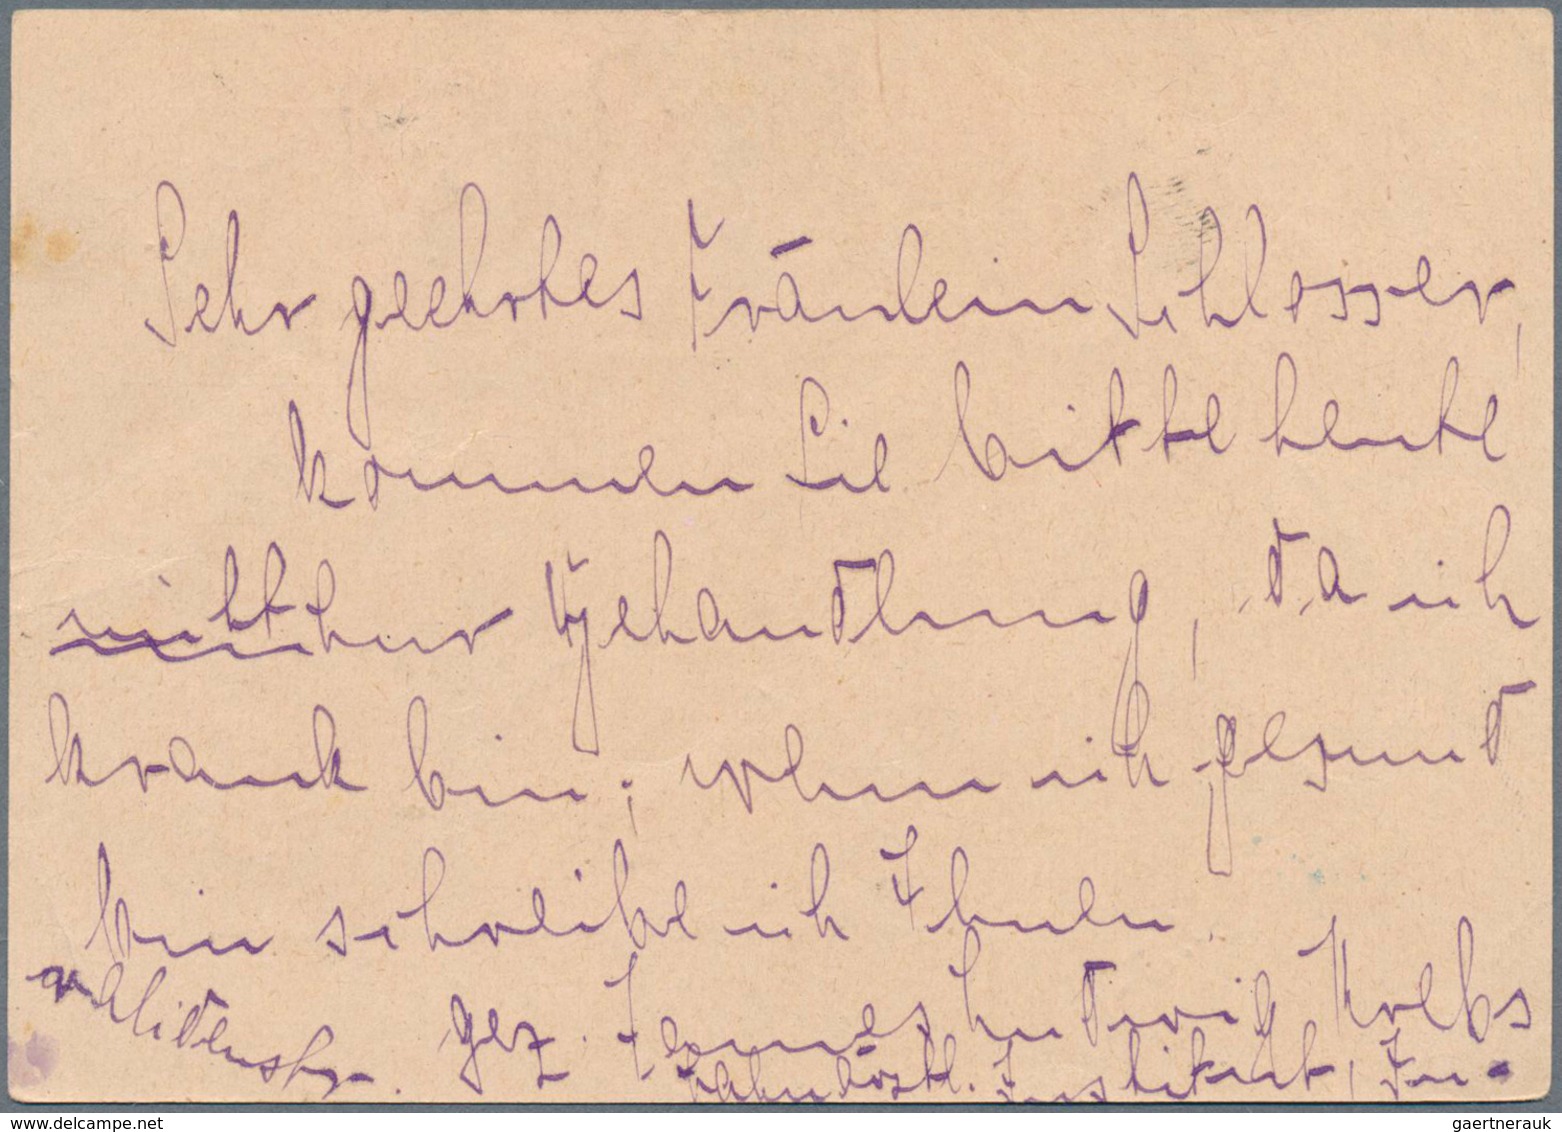 Sehr geehrtes Fräulein Schlosser,
kommen Sie bitte heute
nicht zur Behandlung, da ich
krank bin; wenn ich gesund
bin schreibe ich Ihnen.
gez. Ludwig Krebs
zahnärztl. Institut, In-
validenstr.
gaertnerauk